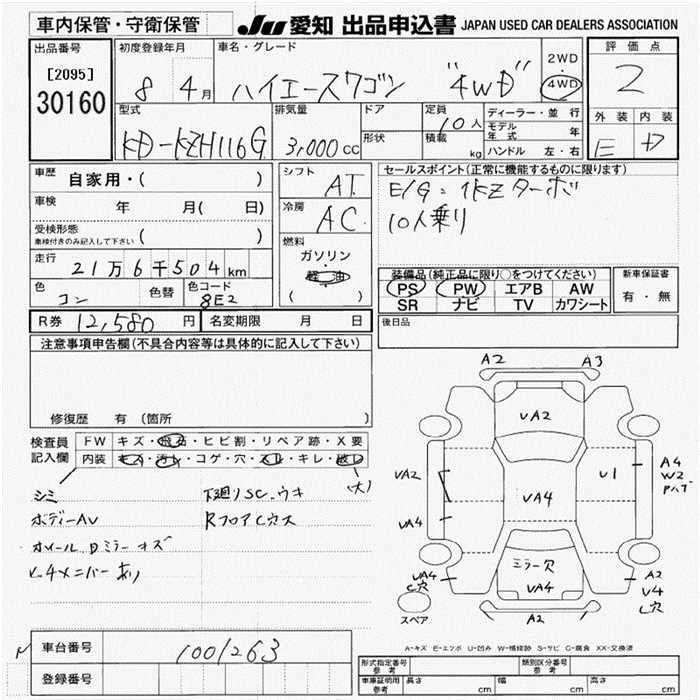 車内保管・守衛保管
JU 愛知 出品申込書 JAPAN USED CAR DEALERS ASSOCIATION
出品番号
[2095]
30160
初度登録年月
8 4月
車名・グレード
ハイエースワゴン "4WD"
2WD
・
4WD
評価点
2
外装 内装
E D
型式
KD-KZH116G
排気量
3,000cc
ドア
形状
定員
10人
積載
kg
ディーラー・並行
モデル年式 年
ハンドル 左・右
車歴
自家用・( )
車検
年 月( 日)
受検形態
車検付きのみ記入して下さい ( )
走行
21万6千504km
色
コン
色替
色コード
8E2
シフト
AT
冷房
AC
燃料
ガソリン
軽油
( )
セールスポイント(正常に機能するものに限ります)
E/G:1KZターボ
10人乗り
装備品(純正品に限り○をつけてください)
PS PW エアB AW
SR ナビ TV カワシート
新車保証書
有・無
R券 12,580円
名変期限 月 日
後日品
注意事項申告欄(不具合内容等は具体的に記入して下さい)
修復歴 有(箇所 )
検査員
記入欄
FW キズ・飛石・ヒビ割・リペア跡・X要
内装 キズ・汚れ・コゲ・穴・スレ・キレ・破レ
(大)
シミ
下廻りSC.ウキ
ボディーAV
RフロアC穴大
ホイール Dミラーキズ
あり
A2 A3
VA2
VA2
VA4
VA4
U1
A4
W2
ミラー穴
VA4
VA4
C穴
A2
A2
V4
スペア
A-キズ E-エクボ U-凹み W-補修跡 S-サビ C-腐食 XX-交換済
車台番号
1001263
登録番号
形式指定番号
参考
類別区分番号
参考
車庫証明用
参考
長さ cm
幅 cm
高さ cm